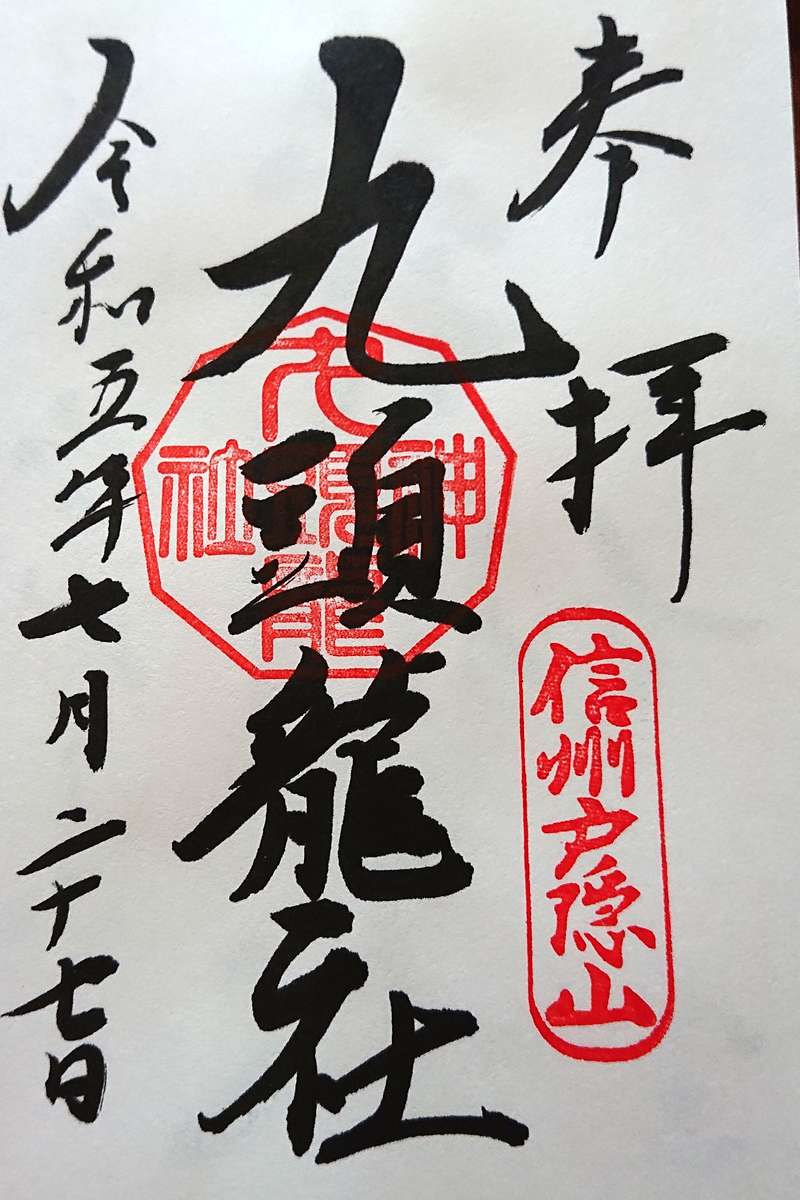 奉拝
信州戸隠山
九頭龍社
九頭龍神社
令和五年七月二十七日